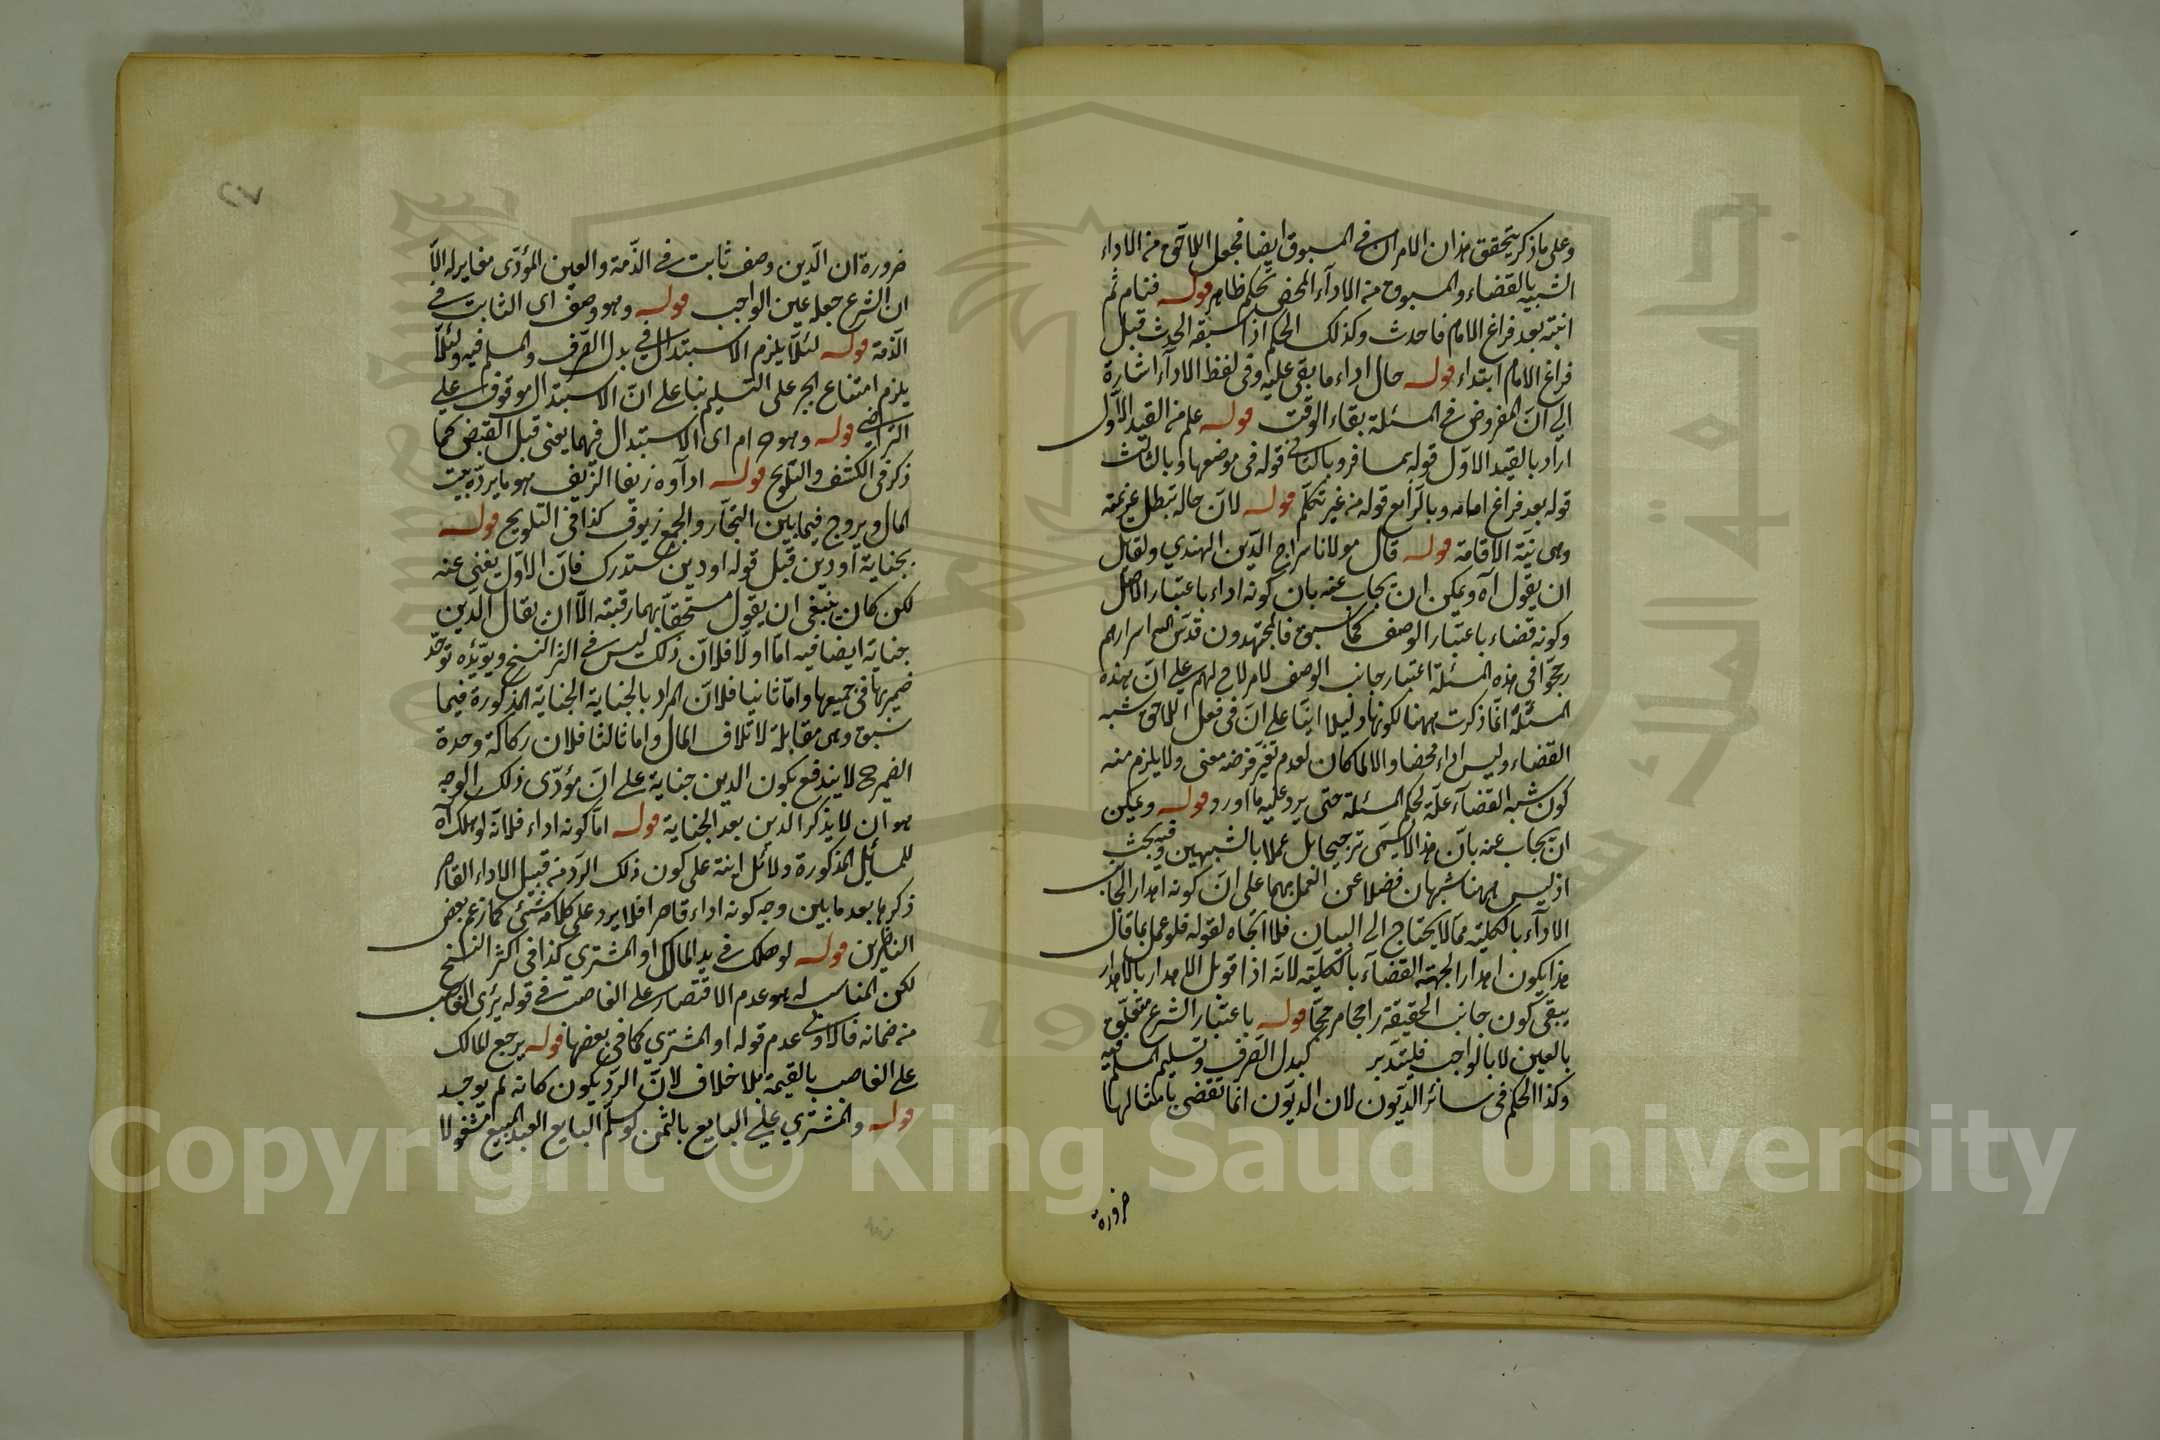 وعلى ما ذكر يتحقق هذان الامران في المسبوق ايضا فجعل اللاحق من الاداء
الشبيه بالقضاء والمسبوق من الاداء المحض تحكم ظاهر قوله فنام ثم
انتبه بعد فراغ الامام فاحدث وكذلك الحكم اذا سبقه الحدث قبل
فراغ الامام ابتداء قوله حال اداء ما بقى عليه وفى لفظ الاداء اشارة
الى ان المفروض في المسئلة بقاء الوقت قوله علم من القيد الاول
اراد بالقيد الاول قوله بمسافر وبالثانى قوله فى موضعها وبالثالث
قوله بعد فراغ امامه وبالرابع قوله من غير تكلم قوله لان حاله تبطل عزيمته
وهى نية الاقامة قوله قال مولانا سراج الدين الهندي ولقائل
ان يقول آه ويمكن ان يجاب عنه بان كونه اداء باعتبار الاصل
وكونه قضاء باعتبار الوصف كما سبق فالمجتهدون قدس اسرارهم
رجحوا فى هذه المسئلة اعتبار جانب الوصف لامر لاح لهم على ان هذه
المسئلة انما ذكرت ههنا لكونها دليلا انيا على ان فى فعل اللاحق شبه
القضاء وليس اداء محضا والا لما كان لعدم تغير فرضه معنى ولا يلزم منه
كون شبه القضاء علة لحكم المسئلة حتى يرد عليه ما اورد قوله ويمكن
ان يجاب عنه بان هذا لا يسمى ترجيحا بل عملا بالشبهين وفيه بحث
اذ ليس ههنا شبهان فضلا عن العمل بهما على ان كونه اهدار الجانب
الاداء بالكلية مما لا يحتاج الى البيان فلا اتجاه لقوله فلو عمل بما قال
هذا يكون اهدارا لجهة القضاء بالكلية لانه اذا قوبل الاهدار بالاهدار
يبقى كون جانب الحقيقة راجحا مرجحا قوله باعتبار الشرع متعلق
بالعين لا بالواجب فليتدبر كبدل الصرف وتسليم المسلم فيه
وكذا الحكم فى سائر الديون لان الديون انما تقضى بامثالها
ضرورة
ضرورة ان الدين وصف ثابت في الذمة والعين المؤدى مغاير له الا
ان الشرع جعله عين الواجب قوله وهو وصف اى الثابت في
الذمة قوله لئلا يلزم الاستبدال في بدل الصرف والمسلم فيه ولئلا
يلزم امتناع الجبر على التسليم بناء على ان الاستبدال موقوف على
التراضي قوله وهو حرام اى الاستبدال فيهما يعنى قبل القبض كما
ذكر فى الكشف والتلويح قوله اداوه زيفا الزيف هو ما يرده بيت
المال ويروج فيما بين التجار والجمع زيوف كذا فى التلويح قوله
بجناية او دين قبل قوله او دين مستدرك فان الاول يغنى عنه
لكن كان ينبغى ان يقول مستحقا بهما رقبته الا ان يقال الدين
جناية ايضا فيه اما اولا فلان ذلك ليس في اكثر النسخ ويؤيده توحد
ضمير بها فى جميعها واما ثانيا فلان المراد بالجناية الجناية المذكورة فيما
سبق وهى مقابلة لاتلاف المال واما ثالثا فلان ركاكة وحدة
الضمير ح لا يندفع بكون الدين جناية على ان مؤدى ذلك الوجه
هو ان لا يذكر الدين بعد الجناية قوله اما كونه اداء فلانه لو هلك آه
للمسايل المذكورة ودلائل انية على كون ذلك الرد من قبيل الاداء القاصر
ذكرها بعد ما بين وجه كونه اداء قاصرا فلا يرد على كلامه شئ كما زعم بعض
الناظرين قوله لو هلك في يد المالك او المشتري كذا فى اكثر النسخ
لكن المناسب له هو عدم الاقتصار على الغاصب في قوله يبرئ الغاصب
من ضمانه فالاولى عدم قوله او المشتري كما فى بعضها قوله يرجع المالك
على الغاصب بالقيمة بلا خلاف لان الرد يكون كانه لم يوجد
قوله والمشتري على البايع بالثمن لو سلم البايع العبد المبيع مشغولا